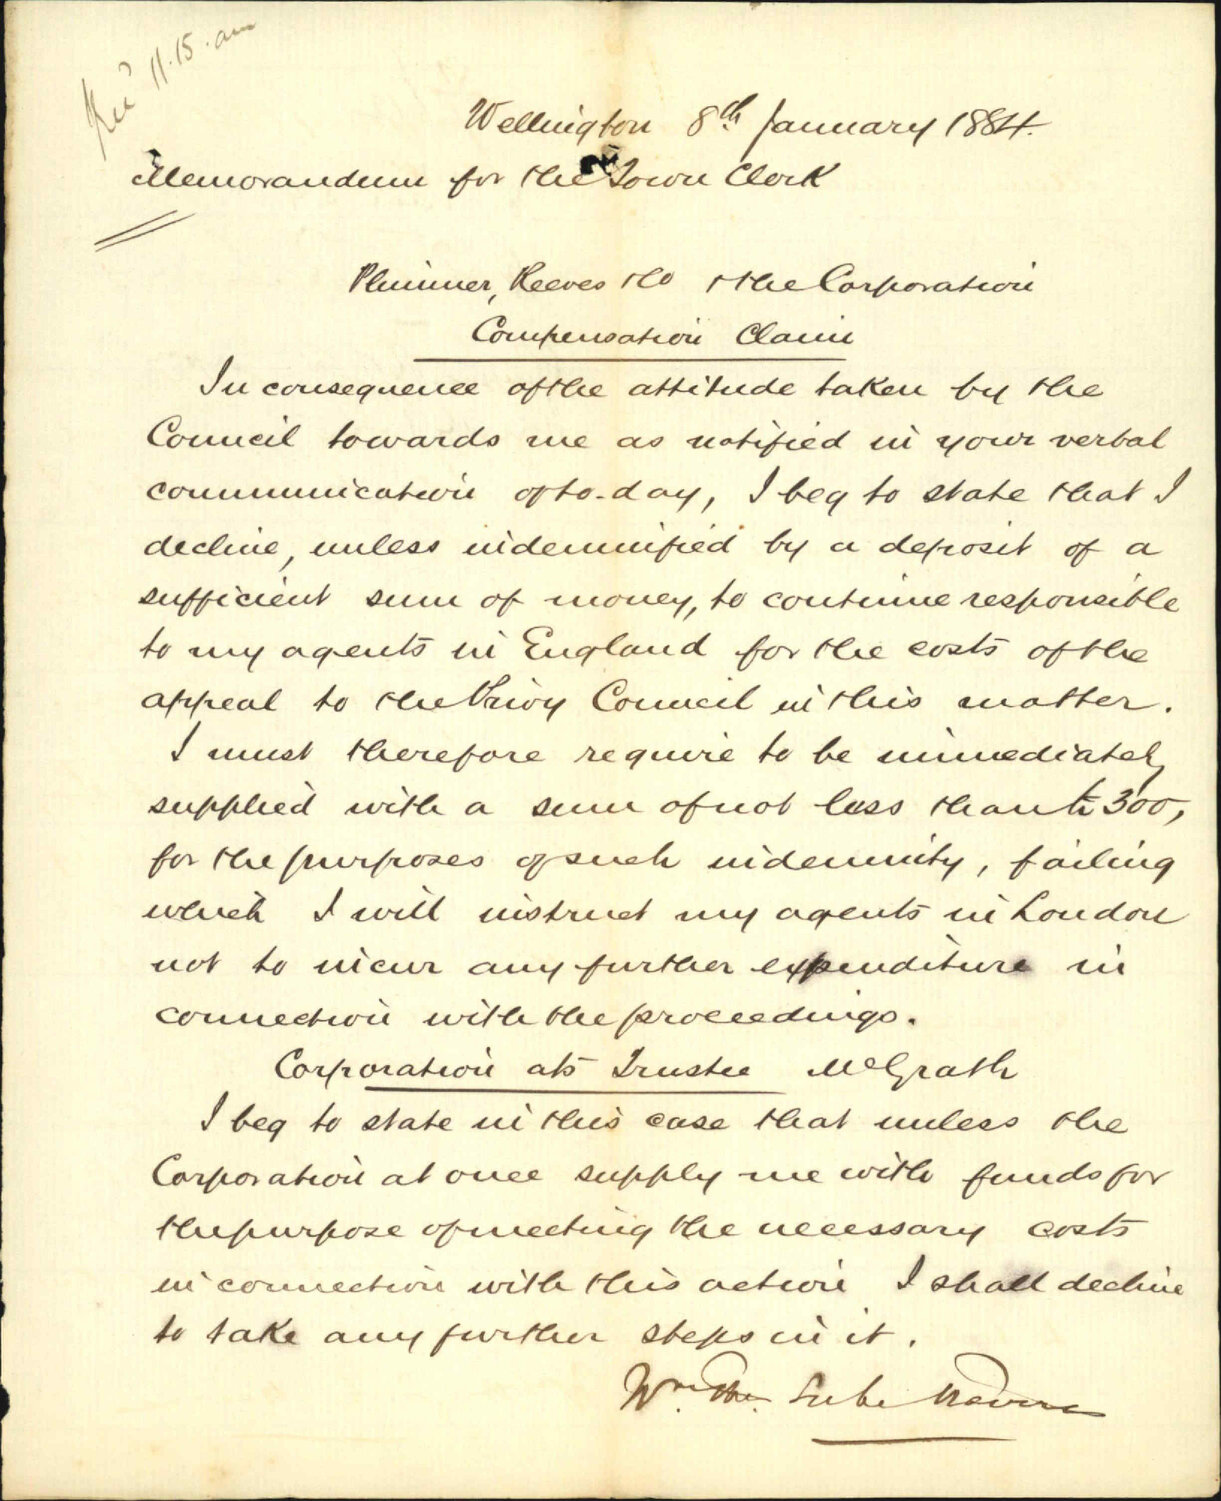 Recd 11.15. am
Wellington 8th January 1884.
Memorandum for the Town Clerk
Plimmer, Reeves & Co v the Corporation
Compensation Claim
In consequence of the attitude taken by the
Council towards me as notified in your verbal
communication of to-day, I beg to state that I
decline, unless indemnified by a deposit of a
sufficient sum of money, to continue responsible
to my agents in England for the costs of the
appeal to the Privy Council in this matter.
I must therefore require to be immediately
supplied with a sum of not less than £300,
for the purposes of such indemnity, failing
which I will instruct my agents in London
not to incur any further expenditure in
connection with the proceedings.
Corporation ats Trustee McGrath
I beg to state in this case that unless the
Corporation at once supply me with funds for
the purpose of meeting the necessary costs
in connection with this action I shall decline
to take any further steps in it.
Wm. Tho. Locke Travers